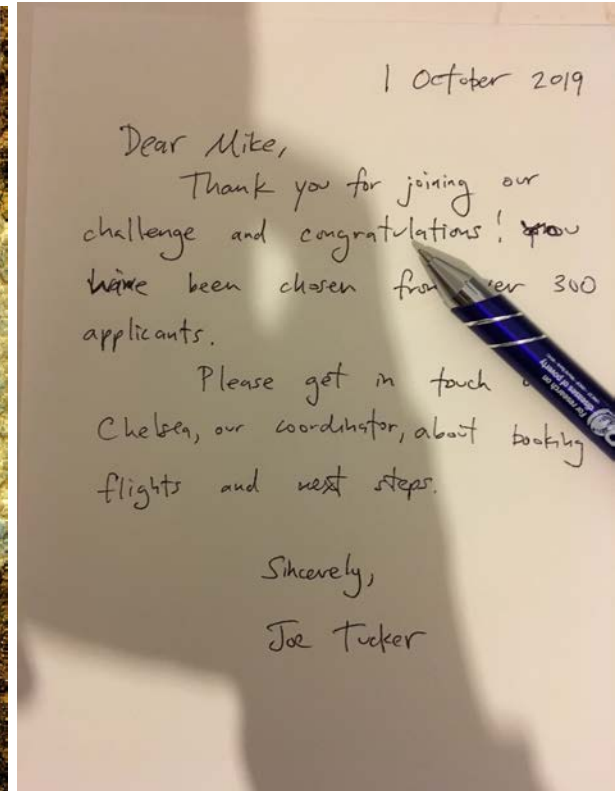 1 October 2019
Dear Mike,
Thank you for joining our
challenge and congratulations! you
have been chosen 300
applicants.
Please get in touch
Chelsea, our coordinator, about booking
flights and next steps.
Sincerely,
Joe Tucker
For research on
diseases of poverty